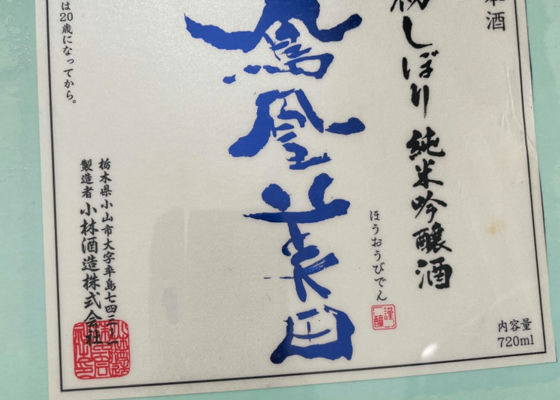 本酒
初しぼり 純米吟醸酒
内容量
720ml
鳳凰美田
ほうおうびでん
謹醸
は20歳になってから。
栃木県小山市大字卒島七四三ー一
製造者 小林酒造株式会社